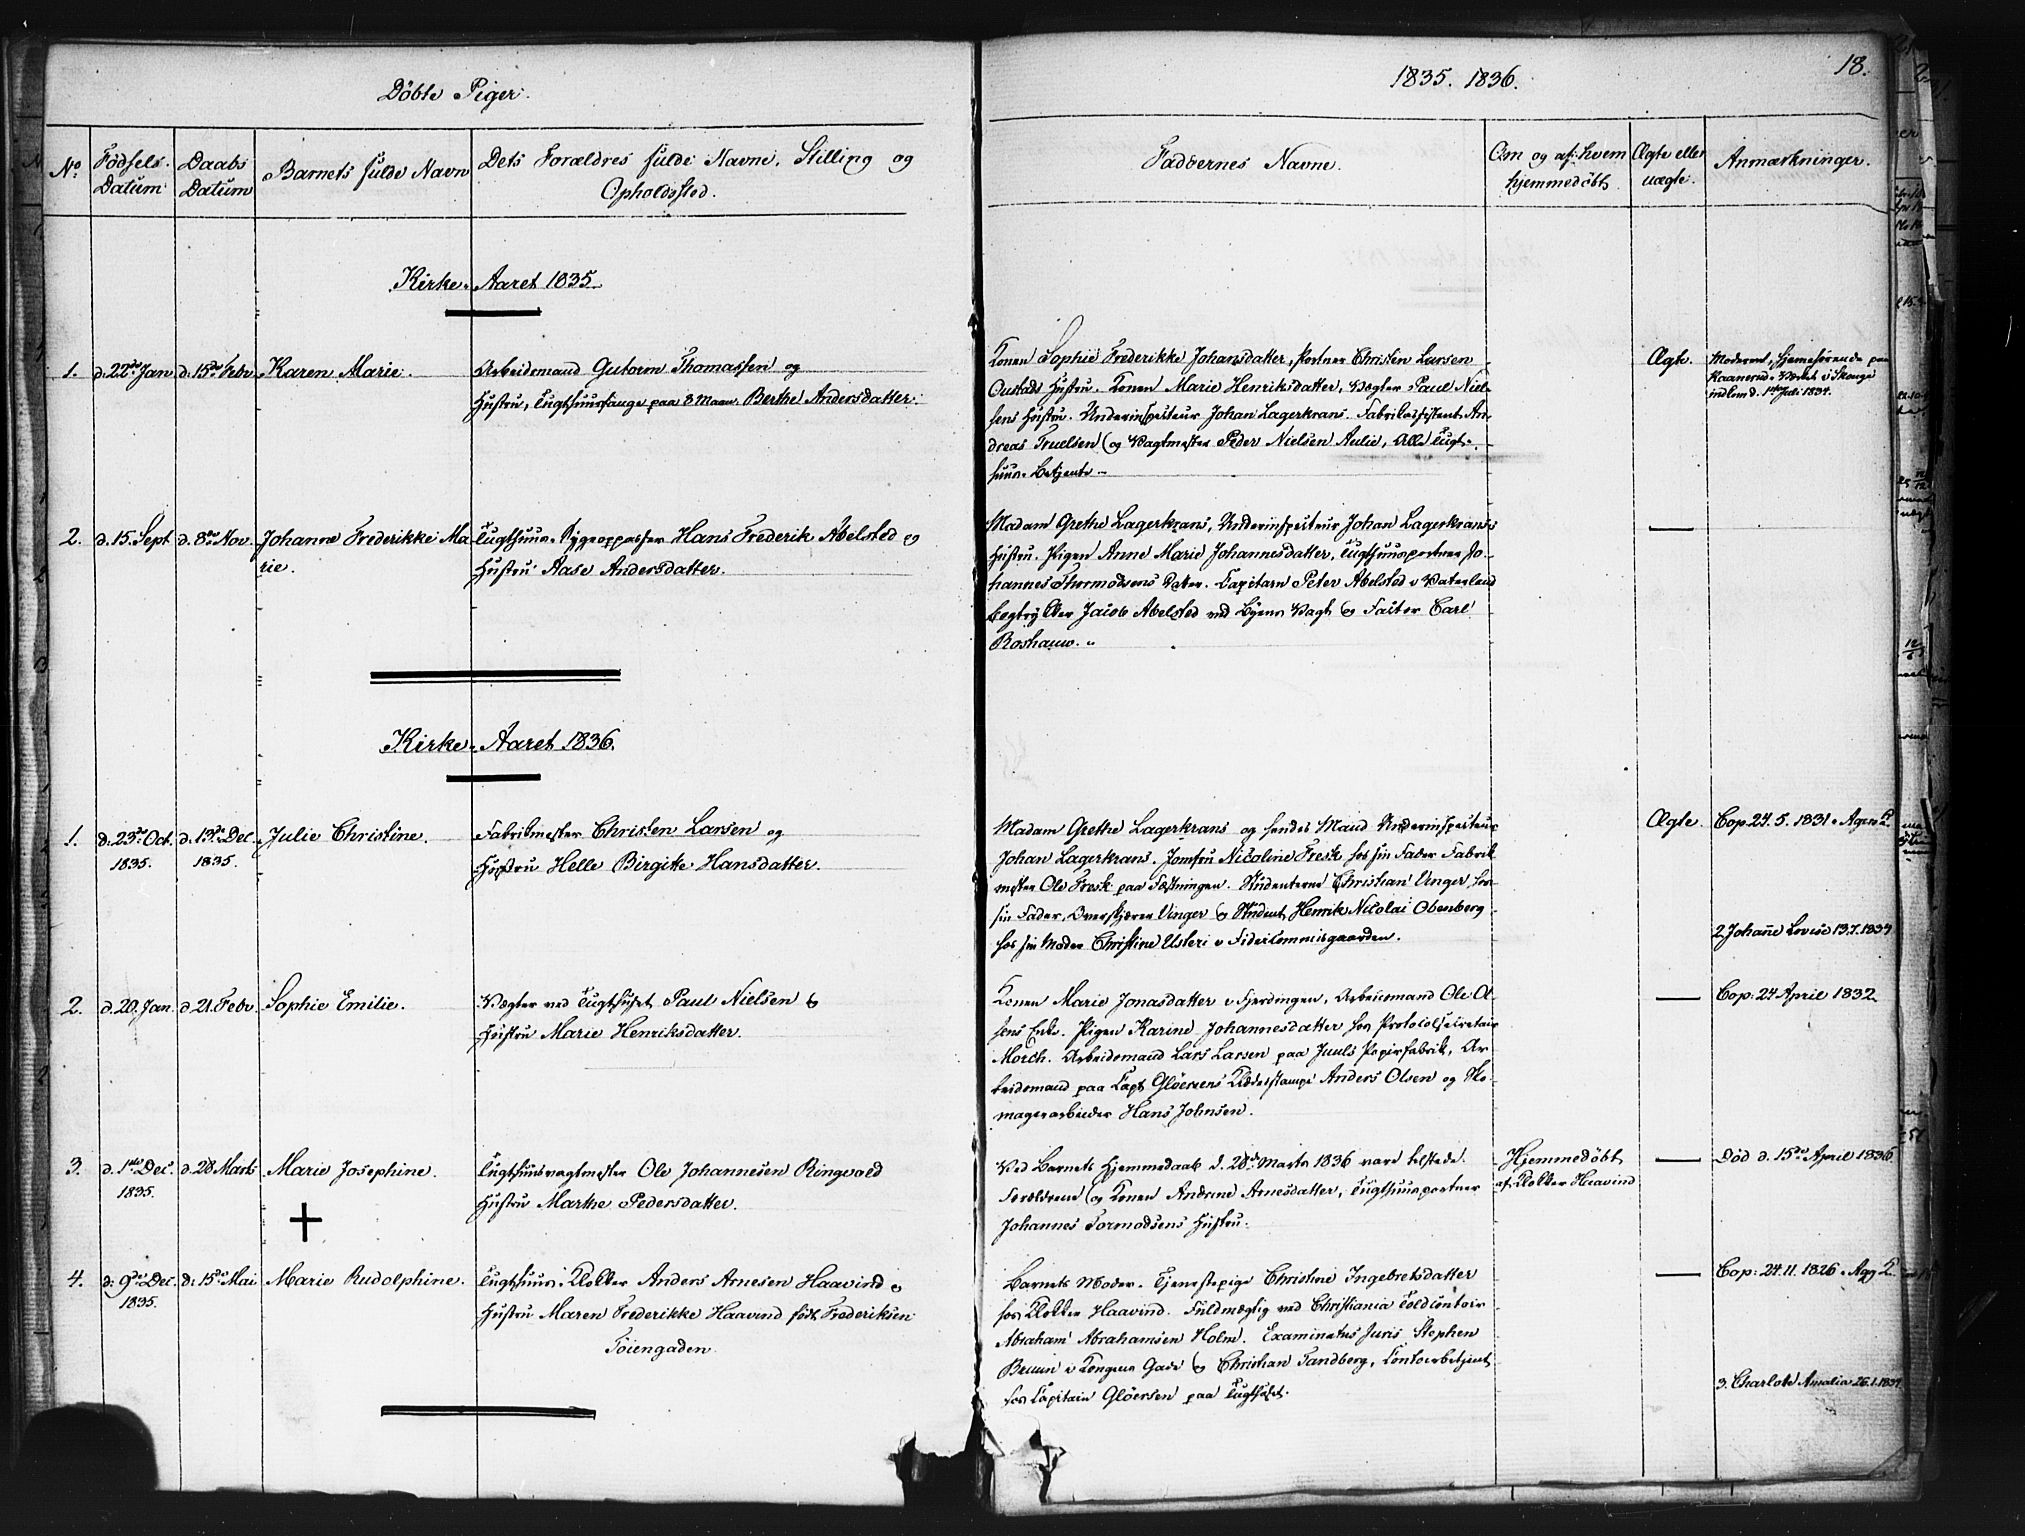 Döbte Piger.
1835. 1836.
18.
No.
Födsels Datum
Daabs Datum
Barnets fulde Navn
Dets Forældres fulde Navne, Stilling og
Opholdssted.
Faddernes Navne.
Om og af hvem
hjemmedöbt.
Ægte eller
uægte.
Anmærkninger.
Kirke-Aaret 1835
1. d. 22de Jan d. 15de Febr. Karen Marie.
Arbeidsmand Gutorm Thomassen og
Hustru, Tugthuusfange paa 8 Maan. Berthe Andersdatter.
Konen Sophie Frederikke Johansdatter, Portner Christen Larsen
Hustru. Konen Marie Henriksdatter, Vægter Paul Niel-
sens Hustru. Underinspecteur Johan Lagerkrans. Fabrikassistent An-
dreas Truelsen og Vagtmester Peder Nielsen Aulie, Alle Tugt-
huus-Betjente.
Ægte.
Moderen hjemmehörende paa
i Skouge
indkom d. 1ste Juli 1834.
2. d. 15. Sept d. 8de Nov. Johanne Frederikke Ma-
rie.
Tugthuus-Sygeoppasser Hans Frederik Abelsted og
Hustru Aase Andersdatter.
Madam Grethe Lagerkrans, Underinspecteur Johan Lagerkrans's
Hustru. Pigen Anne Marie Johannesdatter, Tugthuusportner Jo-
hannes Thormodsens Datter. Capitain Peter Abelsted i Vaterland
Bogtrykker Jacob Abelsted ved Byens Vagt og Factor Carl
Roshauw.
Kirke-Aaret 1836.
1. d. 23de Oct. d. 13de Dec. Julie Christine.
1835. 1835.
Fabrikmester Christen Larsen og
Hustru Helle Birgitte Hansdatter.
Madam Grethe Lagerkrans og hendes Mand Underinspecteur
Johan Lagerkrans. Jomfru Nicoline Fresk hos sin Fader Fabrik-
mester Ole Fresk paa Fæstningen. Studenterne Christian Unger, hos
sin Fader, Overskjærer Unger og Student Henrik Nicolai Obenberg
hos sin Moder Christine Usleri i Fideicommisgaarden.
Ægte.
Cop. 24.5.1831
2 Johañe Lovise 13.7.1834
2. d. 20. Jan. d. 21. Febr. Sophie Emilie.
Vægter ved Tugthuset Paul Nielsen og
Hustru Marie Henriksdatter.
Konen Marie Jonasdatter i Fjerdingen, Arbeidsmand Ole Ol-
sens Enke. Pigen Karine Johannesdatter hos Protocolsecretair
Morch. Arbeidsmand Lars Larsen paa Juuls Papirfabrik, Ar-
beidsmand paa Capt Gløersens Klædestampe Anders Olsen og Sko-
magerarbeider Hans Johnsen.
Cop: 24 April 1832
3. d. 1ste Dec. d. 28. Marts Marie Josephine.
1835.
Tugthuusvagtmester Ole Johannesen Ringvold
Hustru Marthe Pedersdatter.
Ved Barnets Hjemmedaab d. 28de Marts 1836 vare tilstede
Forældrene og Konen Andrine Arnesdatter, Tugthuusportner
Johannes Tormodsens Hustru.
Hjemmedöbt
af Klokker Haavind
Död d. 15de April 1836
4. d. 9de Dec. d. 15de Mai Marie Rudolphine.
1835.
Tugthuus-Klokker Anders Arnesen Haavind og
Hustru Maren Frederikke Haavind föd Frederiksen
Töiengaden
Barnets Moder. Tjenestepige Christine Ingebretsdatter
hos Klokker Haavind. Fuldmægtig ved Christiania Toldcontoir
Abraham Abrahamsen Holm. Examinatus Juris Stephen
Bruun i Kongens Gade og Christian Tandberg, Contoirbetjent
hos Capitain Gløersen paa Tugthuset.
Cop: 24.11.1826
3. Charlote Amalia 26.1.1834